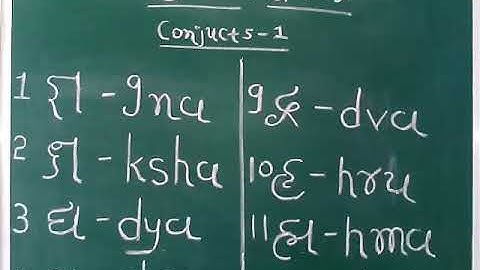 Conjucts-1
1 જ્ઞ - gna
2 ક્ષ - ksha
3 દ્ય - dya
9 દ્વ - dva
10 હૃ - hru
11 હ્મ - hma